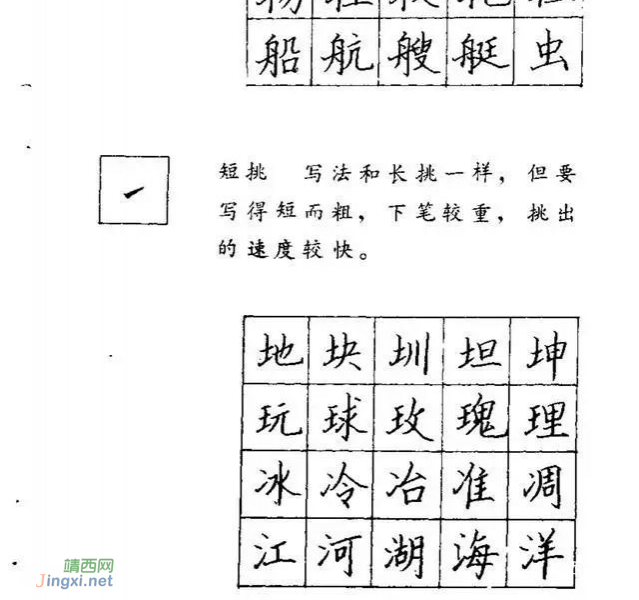 船航艘艇虫
短挑 写法和长挑一样，但要
写得短而粗，下笔较重，挑出
的速度较快。
地块圳坦坤
玩球玫瑰理
冰冷冶准凋
江河湖海洋
靖西网
Jingxi.net